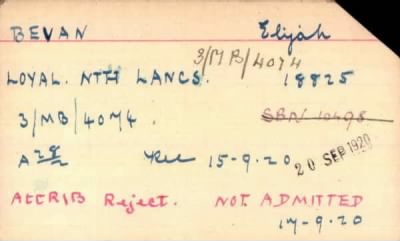 BEVAN Elijah
3/MB/4074
LOYAL. NTH LANCS. 18825
3/MB/4074. SBN 10498
A 15-9.20 20 SEP 1920
ATTRIB Reject. NOT ADMITTED
17-9.20